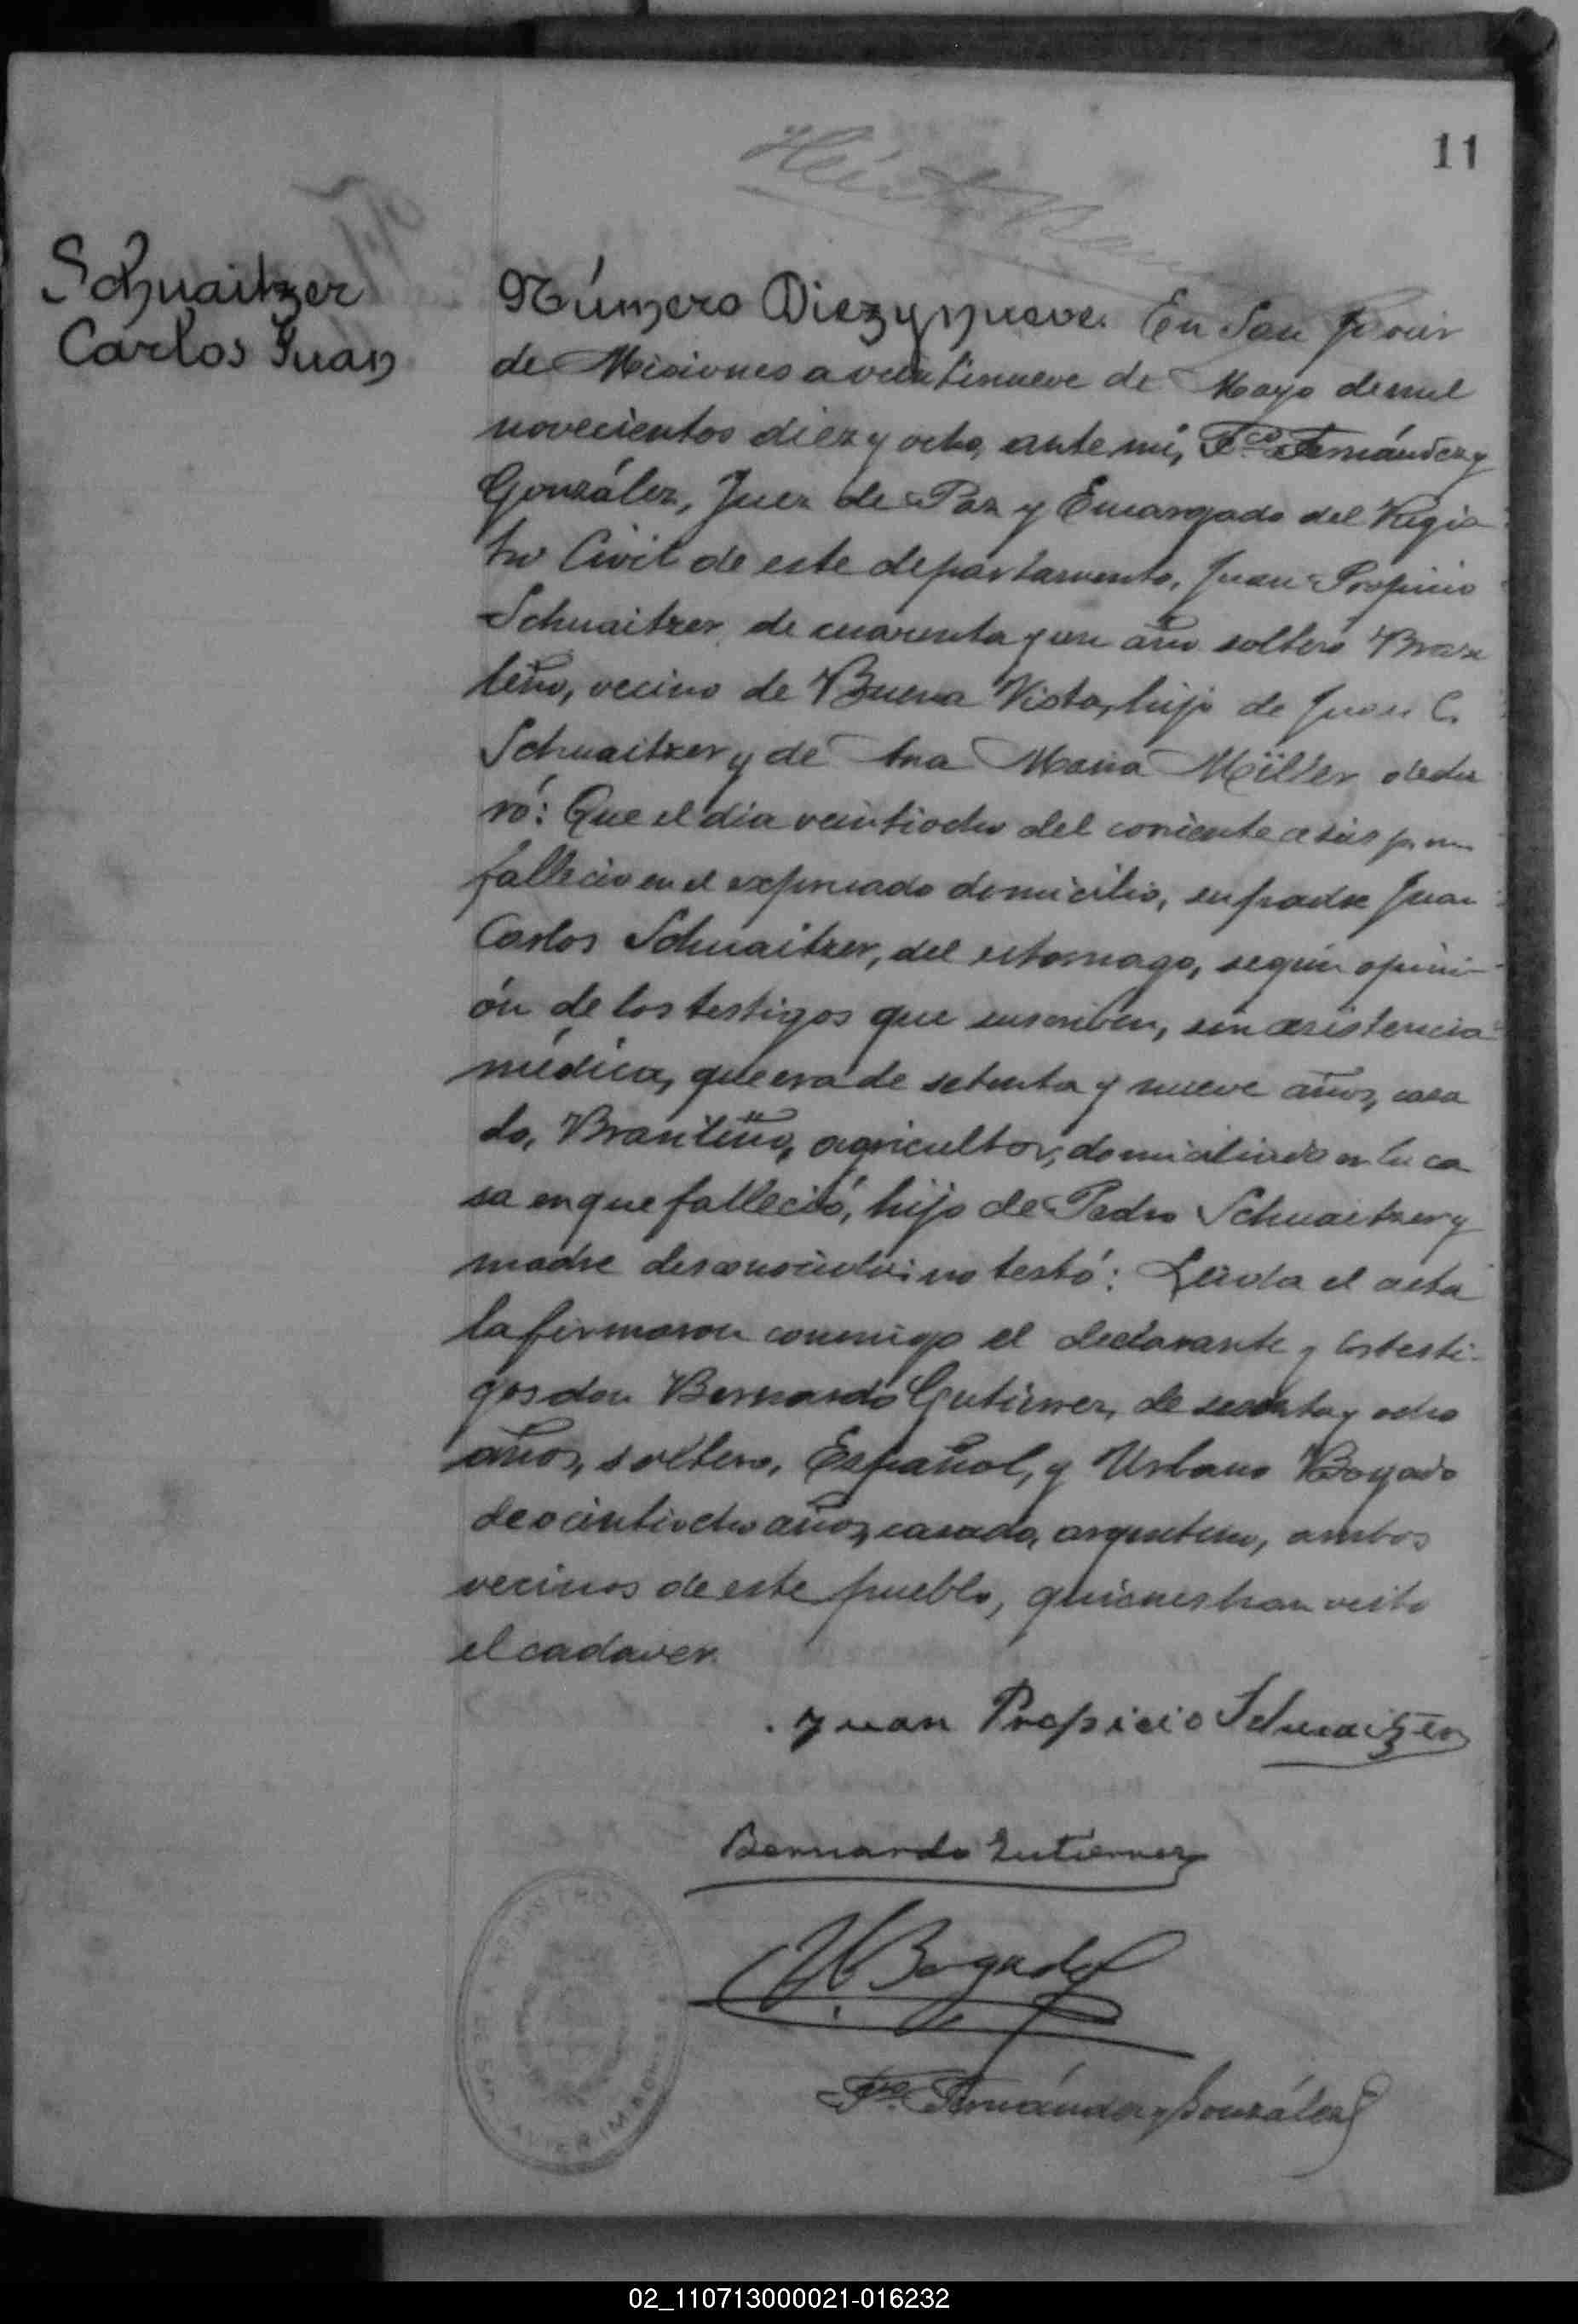 11
Schuaitzer
Carlos Juan
Número Diez y nueve. En San Javier
de Misiones a veintinueve de Mayo de mil
novecientos diez y ocho, ante mí, Fco. Fernández y
González, Juez de Paz y Encargado del Regis
tro Civil de este departamento, Juan Propicio
Schuaitzer de cuarenta y un año soltero Brasi
leño, vecino de Buena Vista, hijo de Juan C.
Schuaitzer y de Ana Maria Müller decla
ró: Que el día veintiocho del corriente a las p.m.
falleció en el expresado domicilio, su padre Juan
Carlos Schuaitzer, del estomago, según opini-
ón de los testigos que suscriben, sin asistencia
médica, que era de setenta y nueve años, casa
do, Brasileño, agricultor, domiciliado en la ca
sa en que falleció, hijo de Pedro Schuaitzer y
madre desconocida; no testó: Leida el acta
la firmaron conmigo el declarante y los testi-
gos don Bernardo Gutierrez, de y ocho
años, soltero, Español, y Urbano Bogado
de veintiocho años, casado, argentino, ambos
vecinos de este pueblo, quienes han visto
el cadaver.
Juan Propicio Schuaitzer
Bernardo Gutierrez
U Bogado
Fco. Fernández y González
REGISTRO CIVIL
DE SAN JAVIER (MISIONES)
02_110713000021-016232